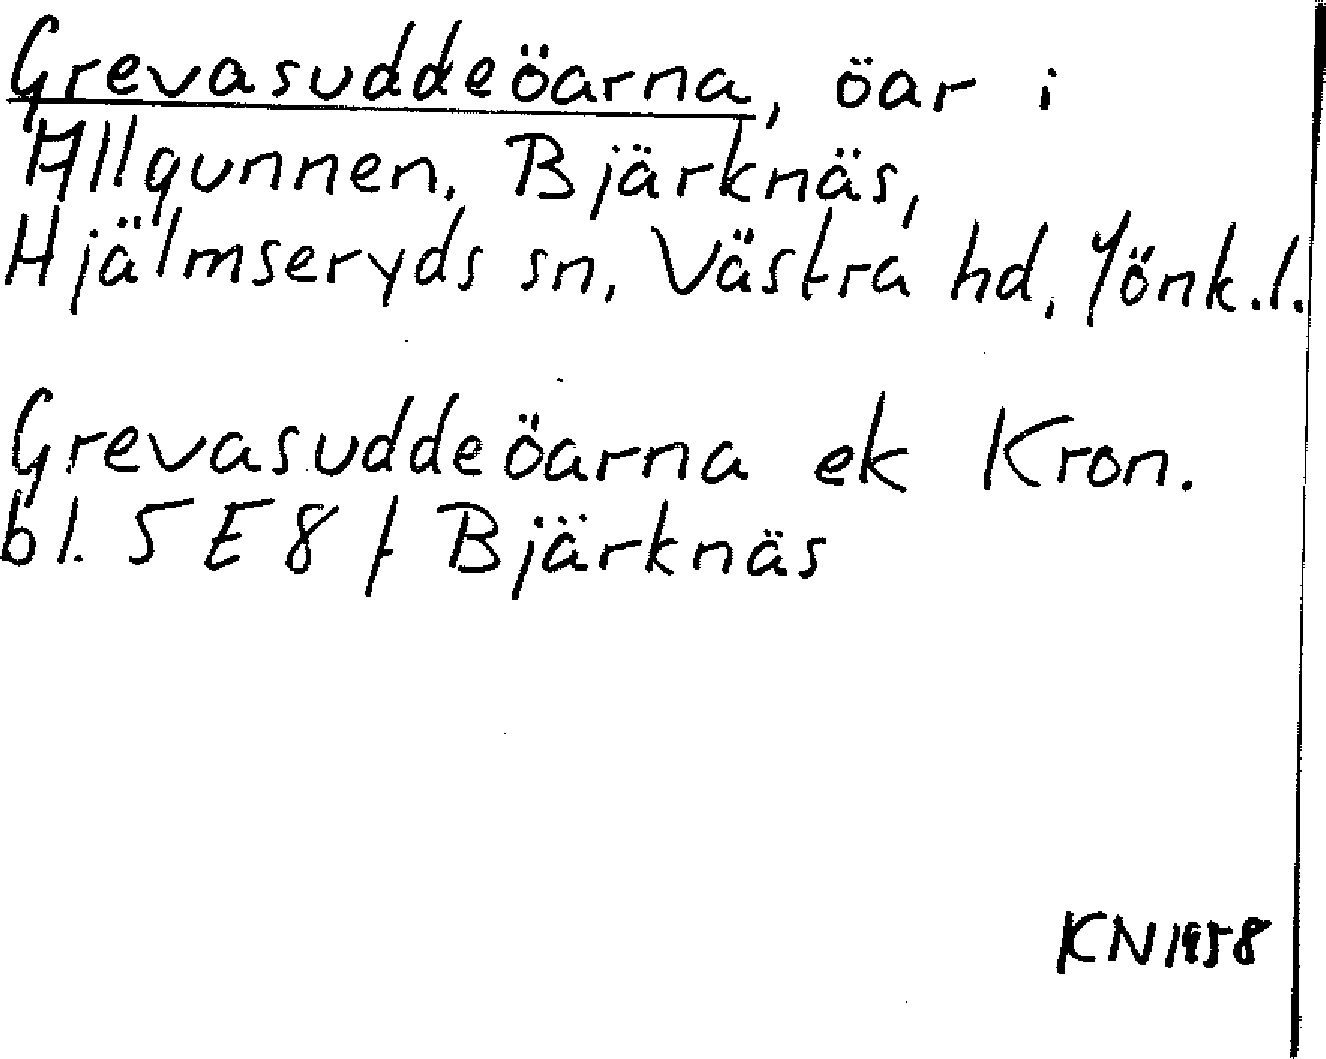 Grevasuddeöarna, öar i
Allgunnen, Bjärknäs,
Hjälmseryds sn, Västra hd, Jönk.l.
Grevasuddeöarna ek Kron.
bl. 5 E 8 f Bjärknäs
KN 1958